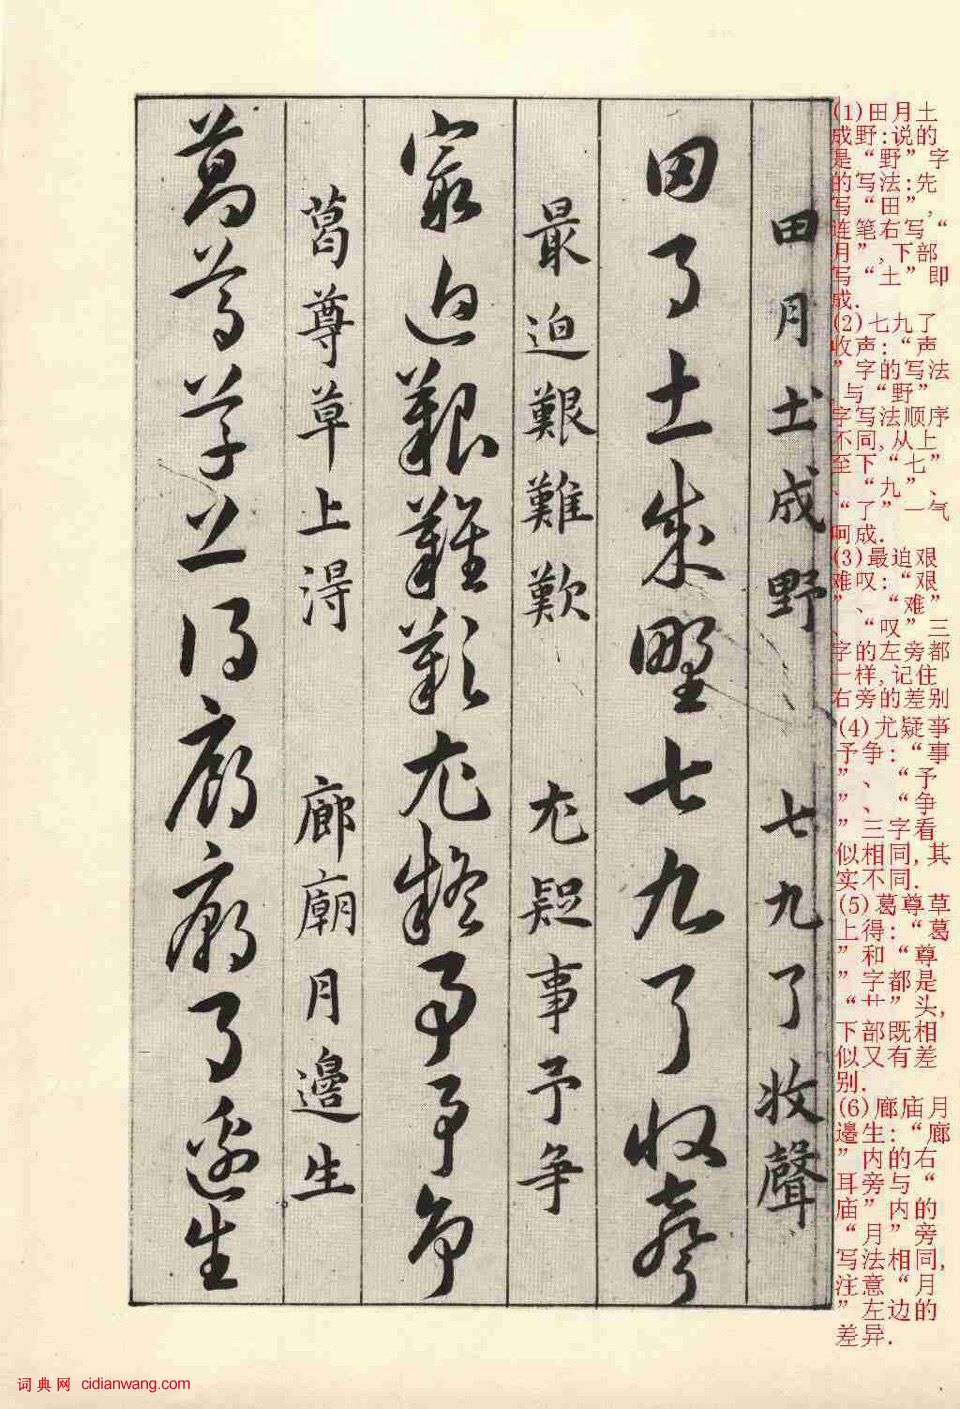 田月土成野七九了收聲
田月土成野　七九了收聲
最迫艱難歎尤疑事予争
最迫艱難歎　尤疑事予争
葛尊草上得廊廟月邊生
葛尊草上得　廊廟月邊生
(1)田月土
成野:说的
是“野”字
的写法:先
写“田”,
连笔右写“
月”,下部
写“土”即
成.
(2)七九了
收声:“声
”字的写法
,与“野”
字写法顺序
不同,从上
至下“七”
、“九”、
“了”一气
呵成.
(3)最迫艰
难叹:“艰
”、“难”
、“叹”三
字的左旁都
一样,记住
右旁的差别
(4)尤疑事
予争:“事
”、“予
”、“争
”三字看
似相同,其
实不同.
(5)葛尊草
上得:“葛
”和“尊
”字都是
“艹”头,
下部既相
似又有差
别.
(6)廊庙月
邉生:“廊
”内的右
耳旁与“
庙”内的
“月”旁
写法相同,
注意“月
”左边的
差异.
词典网 cidianwang.com